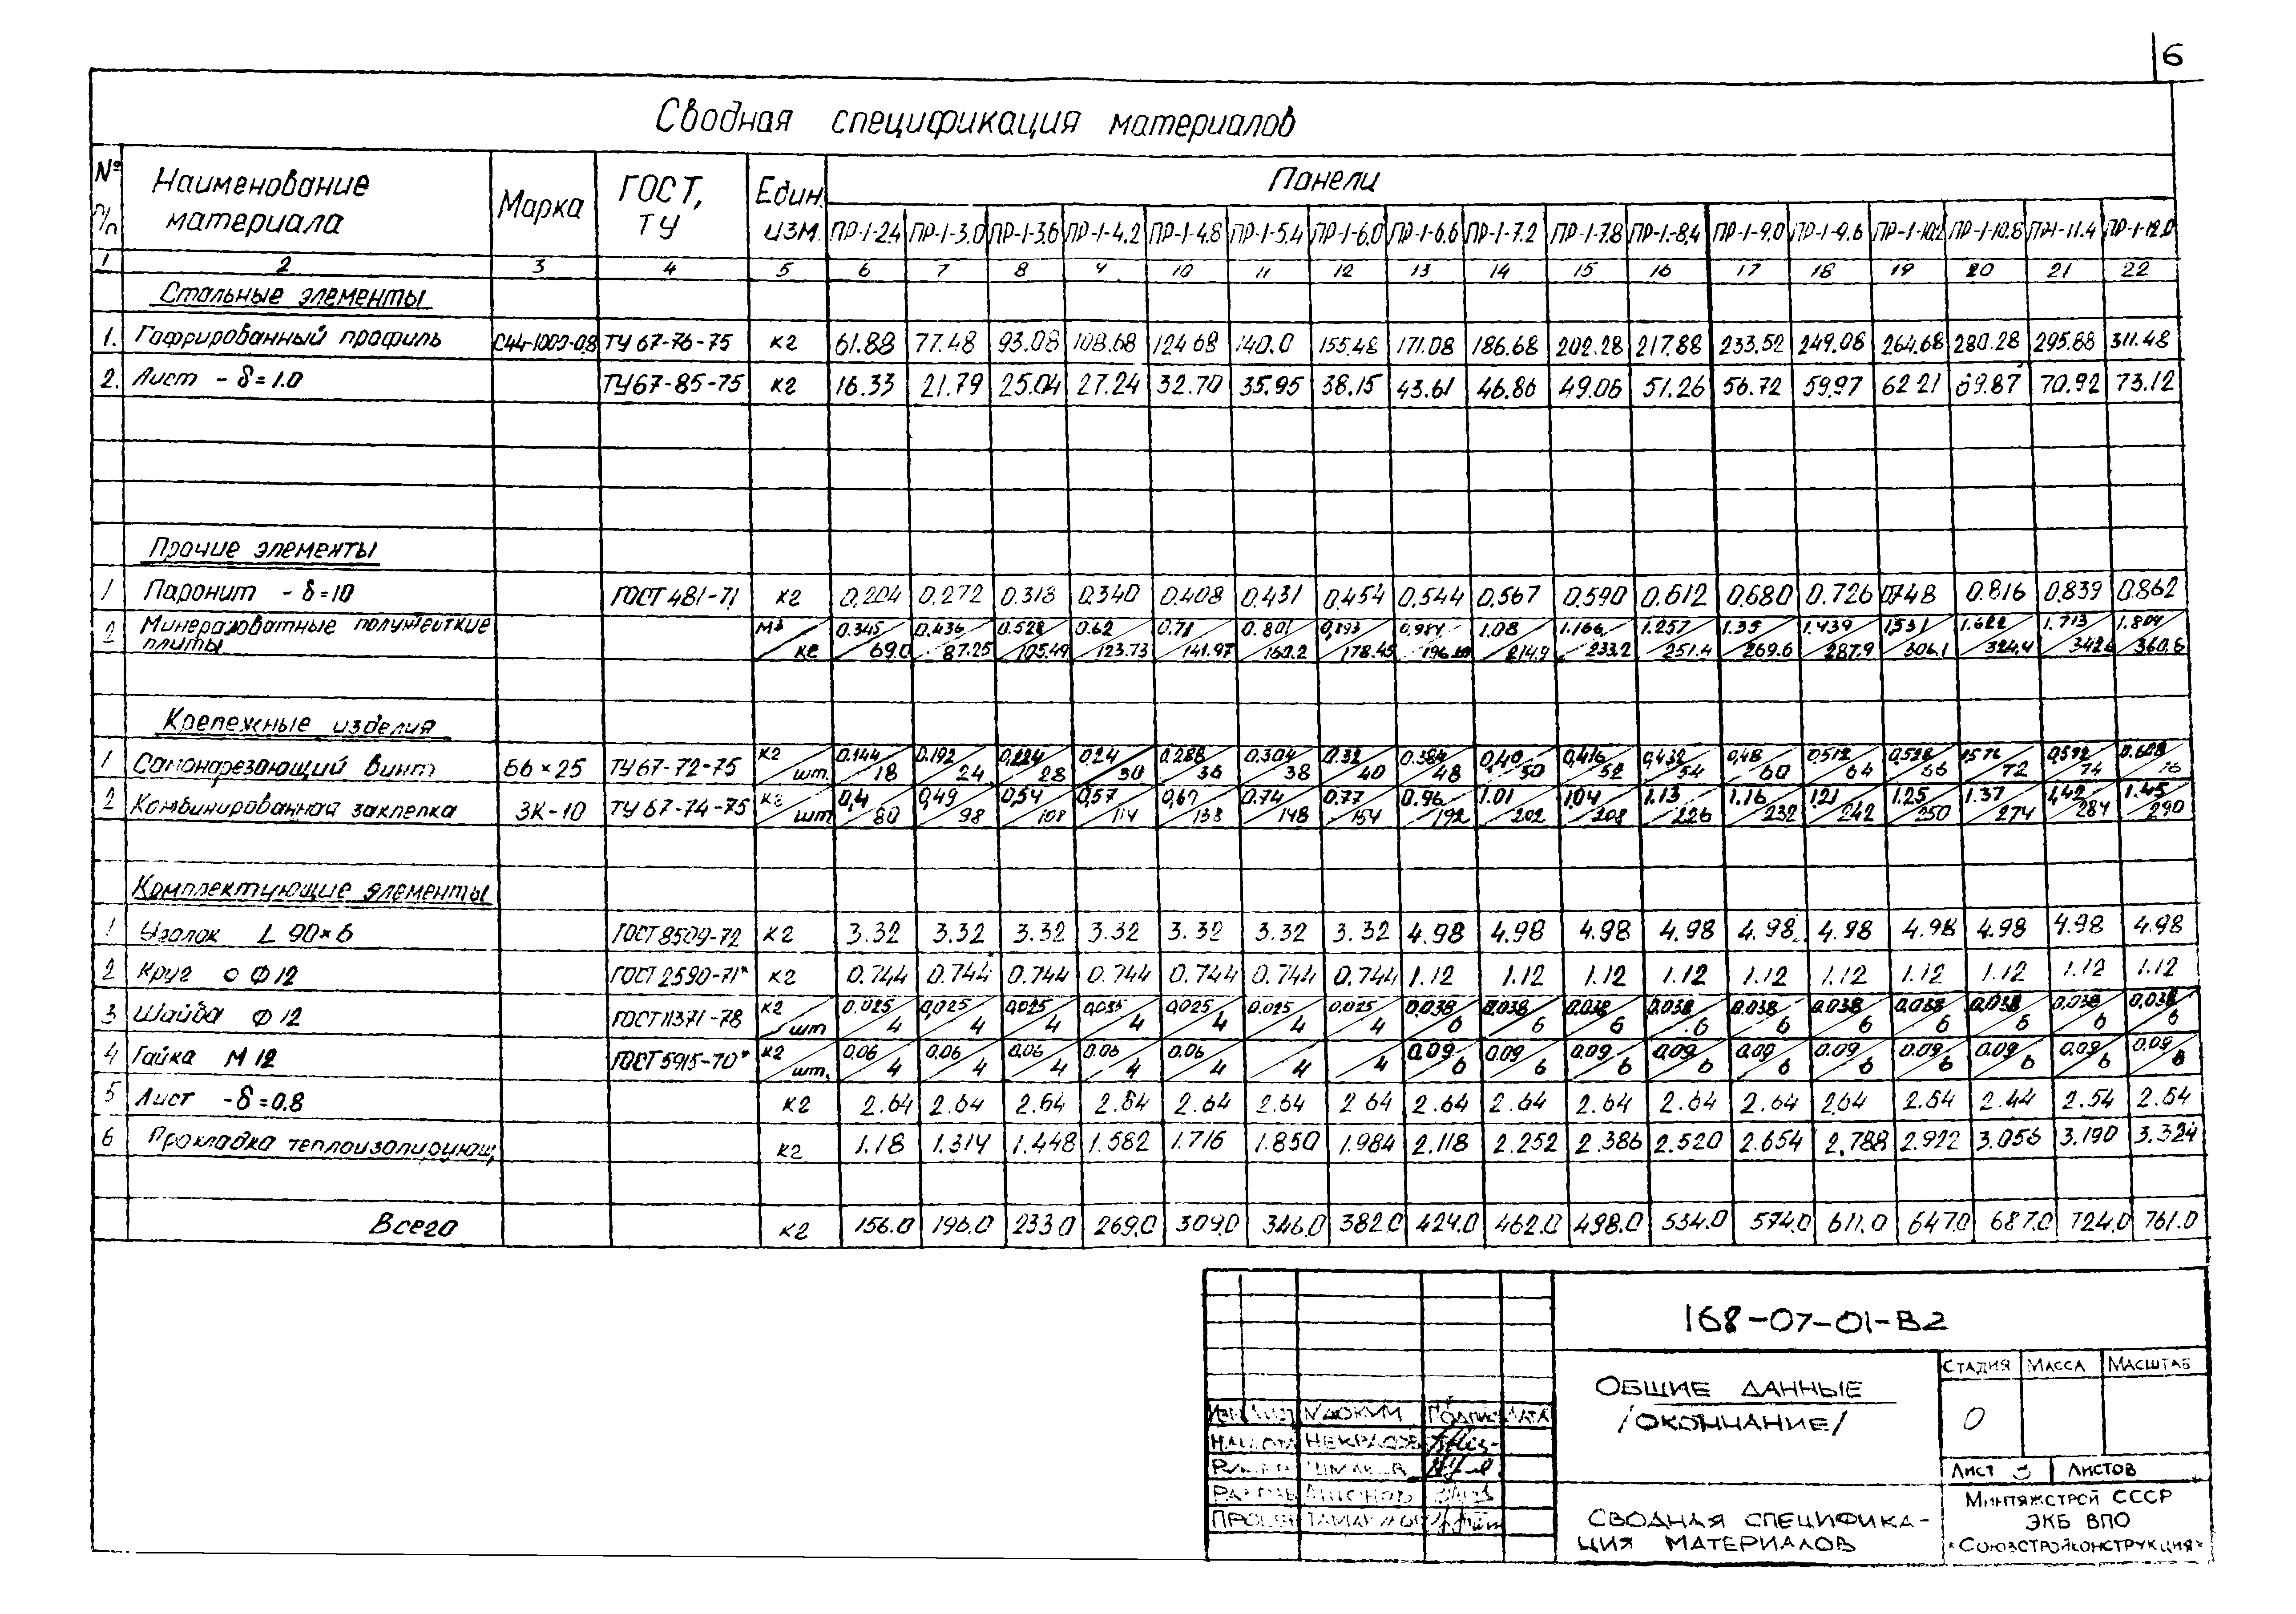 6
Сводная спецификация материалов
№ п/п Наименование материала Марка ГОСТ, ТУ Един. изм. Панели
ПР-1-2.4 ПР-1-3.0 ПР-1-3.6 ПР-1-4.2 ПР-1-4.8 ПР-1-5.4 ПР-1-6.0 ПР-1-6.6 ПР-1-7.2 ПР-1-7.8 ПР-1-8.4 ПР-1-9.0 ПР-1-9.6 ПР-1-10.2 ПР-1-10.8 ПР-1-11.4 ПР-1-12.0
1 2 3 4 5 6 7 8 9 10 11 12 13 14 15 16 17 18 19 20 21 22
Стальные элементы
1. Гофрированный профиль С44-1000-0.8 ТУ 67-76-75 кг 61.88 77.48 93.08 108.68 124.68 140.0 155.48 171.08 186.68 202.28 217.88 233.52 249.08 264.68 280.28 295.88 311.48
2. Лист - δ=1.0 ТУ67-85-75 кг 16.33 21.79 25.04 27.24 32.70 35.95 38.15 43.61 46.86 49.06 51.26 56.72 59.97 62 21 69.87 70.92 73.12
Прочие элементы
1 Паронит - δ=10 ГОСТ 481-71 кг 0.204 0.272 0.318 0.340 0.408 0.431 0.454 0.544 0.567 0.590 0.612 0.680 0.726 0.748 0.816 0.839 0.862
2 Минераловатные полужесткие плиты м³ 0.345 0.436 0.528 0.62 0.71 0.801 0.893 0.984 1.08 1.166 1.257 1.35 1.439 1.531 1.622 1.713 1.804
кг 69.0 87.25 105.49 123.73 141.97 160.2 178.45 214.9 233.2 251.4 269.6 287.9 306.1 324.4 342.6 360.6
Крепежные изделия
1 Самонарезающий винт Б6×25 ТУ67-72-75 кг 0.144 0.192 0.224 0.24 0.288 0.304 0.32 0.384 0.40 0.416 0.432 0.48 0.512 0.528 0.576 0.592 0.608
шт. 18 24 28 30 36 38 40 48 50 52 54 60 64 66 72 74 76
2 Комбинированная заклепка ЗК-10 ТУ 67-74-75 кг 0.4 0.49 0.54 0.57 0.67 0.74 0.77 0.96 1.01 1.04 1.13 1.16 1.21 1.25 1.37 1.42 1.45
шт 80 98 108 114 133 148 154 192 202 208 226 232 242 250 274 284 290
Комплектующие элементы
1 Уголок L 90×6 ГОСТ 8509-72 кг 3.32 3.32 3.32 3.32 3.32 3.32 3.32 4.98 4.98 4.98 4.98 4.98 4.98 4.98 4.98 4.98 4.98
2 Круг о Ф 12 ГОСТ 2590-71* кг 0.744 0.744 0.744 0.744 0.744 0.744 0.744 1.12 1.12 1.12 1.12 1.12 1.12 1.12 1.12 1.12 1.12
3 Шайба Ф 12 ГОСТ 11371-78 кг 0.025 0.025 0.025 0.025 0.025 0.025 0.025 0.038 0.038 0.038 0.038 0.038 0.038 0.038 0.038 0.038 0.038
шт 4 4 4 4 4 4 4 6 6 6 6 6 6 6 6 6 6
4 Гайка М 12 ГОСТ 5915-70* кг 0.06 0.06 0.06 0.06 0.06 0.09 0.09 0.09 0.09 0.09 0.09 0.09 0.09 0.09 0.09
шт. 4 4 4 4 4 4 4 6 6 6 6 6 6 6 6 6 6
5 Лист - δ=0.8 кг 2.64 2.64 2.64 2.64 2.64 2.64 2 64 2.64 2.64 2.64 2.64 2.64 2.64 2.64 2.44 2.54 2.64
6 Прокладка теплоизолирующ. кг 1.18 1.314 1.448 1.582 1.716 1.850 1.984 2.118 2.252 2.386 2.520 2.654 2.788 2.922 3.056 3.190 3.324
Всего кг 156.0 196.0 233.0 269.0 309.0 346.0 382.0 424.0 462.0 498.0 534.0 574.0 611.0 647.0 687.0 724.0 761.0
168-07-01-В2
ОБЩИЕ ДАННЫЕ
/ОКОНЧАНИЕ/
СТАДИЯ МАССА МАСШТАБ
О
ЛИСТ 3 ЛИСТОВ
ИЗМ ЛИСТ №ДОКУМ ПОДПИСЬ ДАТА
НЕКРАСОВ
СВОДНАЯ СПЕЦИФИКА-
ЦИЯ МАТЕРИАЛОВ
МИНТЯЖСТРОЙ СССР
ЭКБ ВПО
"СОЮЗСТРОЙКОНСТРУКЦИЯ"